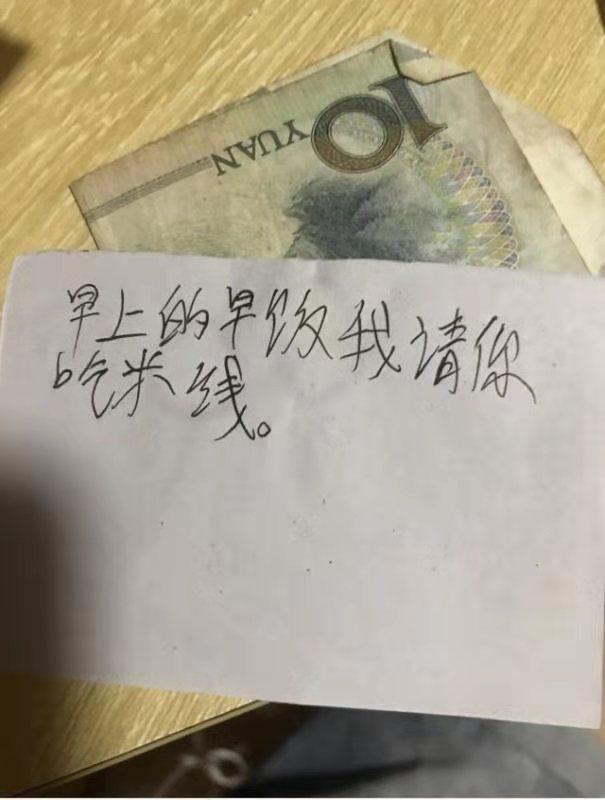 10 YUAN
早上的早饭我请你
吃米线。